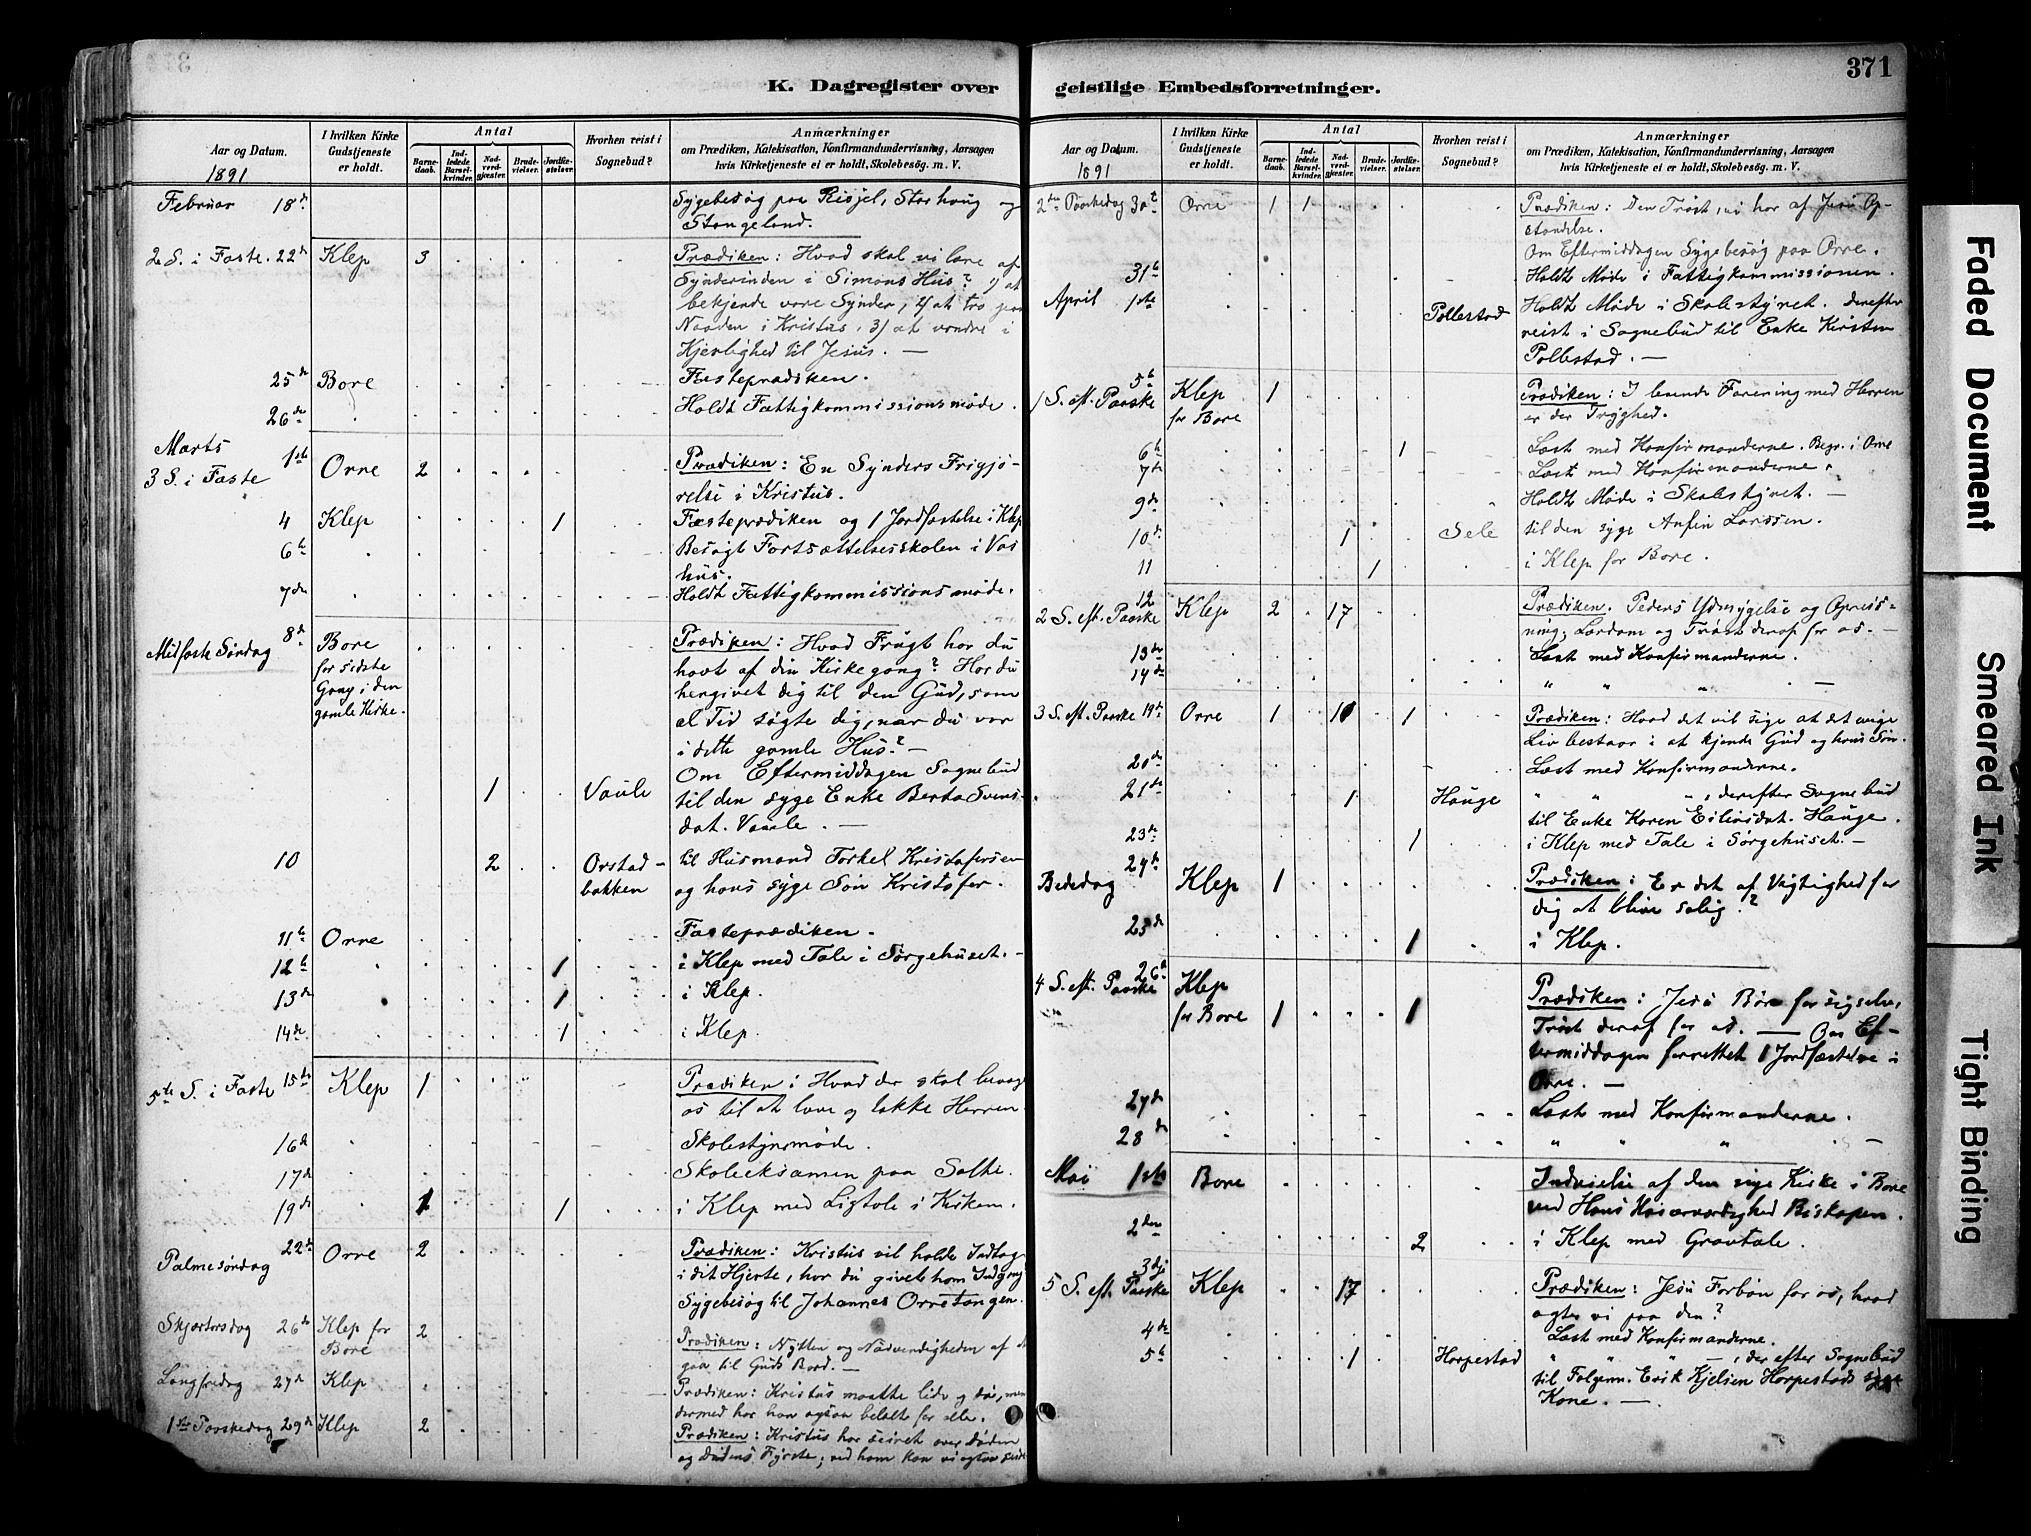 371
K. Dagregister over
Aar og Datum.
1891
I hvilken Kirke
Gudstjeneste
er holdt.
Antal
Barne-
daab.
Ind-
ledede
Barsel-
kvinder.
Nad-
verd-
gjester.
Brude-
vielser.
Jordfæ-
stelser.
Hvorhen reist i
Sognebud?
Anmærkninger
om Prædiken, Katekisation, Konfirmandundervisning, Aarsagen
hvis Kirketjeneste ei er holdt, Skolebesøg. m. V.
Februar 18de Sygebesøg paa Risjel, Storhaug og
Stangeland.
2 S. i Faste. 22de Klep 3 Prædiken: Hvad skal vi lære af
Synderinden i Simons Hus? 1) at
bekjende vore Synder, 2) at tro paa
Naaden i Kristus, 3) at vandre i
Kjærlighed til Jesus. —
25de Bore Fasteprædiken.
26de Holdt Fattigkommissionsmøde.
Marts
3 S. i Faste 1ste Orre 2 Prædiken: En Synders Frigjø-
relse i Kristus.
4 Klep 1 Fasteprædiken og 1 Jordfæstelse i Klep
6te Besøgt Fortsættelsesskolen i Vas-
hus.
7de Holdt Fattigkommissionsmøde.
Midfaste Søndag 8de Bore Prædiken: Hvad Frugt har du
for sidste havt af din Kirkegang? Har du
Gang i den hengivet dig til den Gud, som
gamle Kirke. al Tid søgte dig, naar du var
i dette gamle Hus? —
Om Eftermiddagen Sognebud
1 Vaule til den syge Enke Berta Svens-
dat. Vaule. —
10 2 Orstad- til Husmand Torkel Kristofersen
bakken og hans syge Søn Kristofer.
11te Orre Fasteprædiken.
12te 1 i Klep med Tale i Sørgehuset. —
13de 1 i Klep.
14de 1 i Klep.
5te S. i Faste 15de Klep 1 Prædiken: Hvad der skal bevæge
os til at love og takke Herren.
16de Skolestyrsmøde.
17de Skoleeksamen paa Solte.
19de 1 1 i Klep med Ligtale i Kirken.
Palmesøndag 22de Orre 2 Prædiken: Kristus vil holde Indtog
i dit Hjerte, har du givet ham Indgang
Sygebesøg til Johannes Orretangen.
Skjærtorsdag 26de Klep for 2 Prædiken: Nytten og Nødvendigheden af at
Bore gaa til Guds Bord. —
Langfredag 27de Klep Prædiken: Kristus maatte lide og dø, men
dermed har han ogsaa betalt for alle.
1ste Paaskedag 29de Klep 2 Prædiken: Kristus har seiret over Døden
og Dødens Fyrste; ved ham kan vi ogsaa seire
geistlige Embedsforretninger.
Aar og Datum.
1891
I hvilken Kirke
Gudstjeneste
er holdt.
Antal
Barne-
daab.
Ind-
ledede
Barsel-
kvinder.
Nad-
verd-
gjester.
Brude-
vielser.
Jordfæ-
stelser.
Hvorhen reist i
Sognebud?
Anmærkninger
om Prædiken, Katekisation, Konfirmandundervisning, Aarsagen
hvis Kirketjeneste ei er holdt, Skolebesøg. m. V.
2den Paaskedag 30te Orre 1 1 Prædiken: Den Trøst, vi har af Jesu Op-
standelse.
Om Eftermiddagen Sygebesøg paa Orre.
31te Holdt Møde i Fattigkommissionen.
April 1ste Pollestad Holdt Møde i Skolestyret. derefter
reist i Sognebud til Enke Kirsten
Pollestad. —
1 S. eft. Paaske 5te Klep 1 Prædiken: I levende Forening med Herren
for Bore er der Tryghed.
6te 1 Læst med Konfirmanderne. Begr. i Orre
7de Læst med Konfirmanderne.
9de Holdt Møde i Skolestyret. —
10de 1 Sele til den syge Anfin Larssen.
11 1 i Klep for Bore.
2 S. eft. Paaske 12 Klep 2 17 Prædiken. Peders Ydmygelse og Opreis-
ning; Lærdom og Trøst deraf for os. —
13de Læst med Konfirmanderne.
14de " " " —
3 S. eft. Paaske 19de Orre 1 1 Prædiken: Hvad det vil sige at det evige
Liv bestaar i at kjende Gud og hans Søn.
20de Læst med Konfirmanderne.
21de 1 Hauge " " ", derefter Sognebud
til Enke Karen Eilivsdat. Hauge.
23de 1 i Klep med Tale i Sørgehuset. —
Bededag 24de Klep 1 Prædiken: Er det af Vigtighed for
dig at blive salig?
25de 1 i Klep.
4 S. eft. Paaske 26de Klep Prædiken: Jesu Bøn for sig selv,
for Bore 1 1 Trøst deraf for os. — Om Ef-
termiddagen forrettet 1 Jordfæstelse i
Orre. —
27de Læst med Konfirmanderne.
28de " " " —
Mai 1ste Bore Indvielse af den nye Kirke i Bore
ved Hans Høiærværdighed Biskopen.
2den 2 i Klep med Gravtale.
5 S. eft. Paaske 3dje Klep 17 Prædiken: Jesu Forbøn for os, hvad
agter vi paa den?
4de Læst med Konfirmanderne.
5te 1 Horpestad " " " —, derefter Sognebud
til Folgem. Erik Kjelsen Horpestads syge
Kone. —
Faded Document
Smeared Ink
Tight Binding